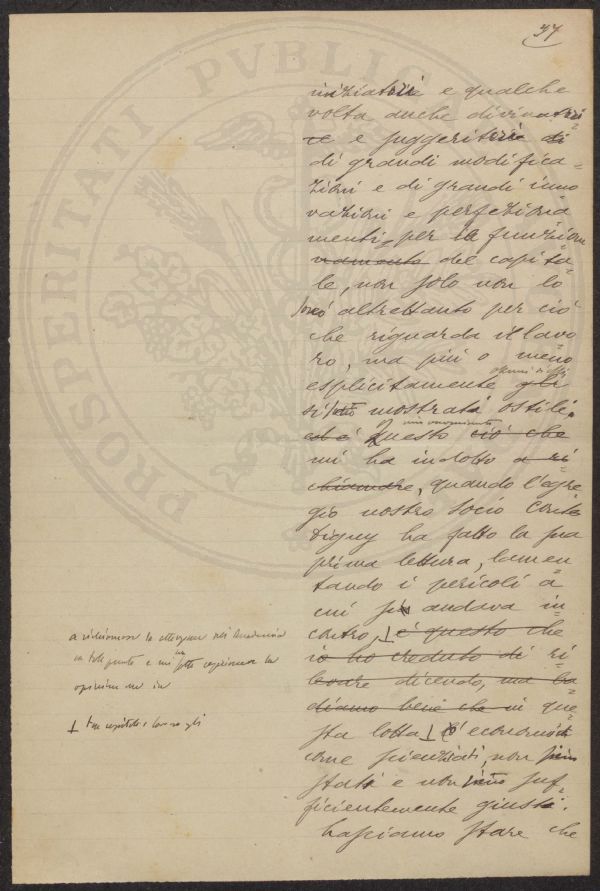 37
iniziatrii e qualche
volta anche divinatri
ce e suggeritrii di
di grandi modifica=
zioni e di grandi inno
vazioni e perfeziona
menti, per la funzion
vramento del capita=
le, non solo non lo
altrettanto per ciò
che riguarda il lavo
ro, ma più o meno
esplicitamente gli
si mostrata ostile.
ed è Questo ciò che
mi ha indotto a ri
chiamare, quando l'egre
gio nostro socio conte
ha fatto la sua
prima lettura, lamen
tando i pericoli a
cui si andava in=
contro, è questo che
io ho creduto di ri
levare dicendo, ma ba
diamo bene che in que
sta lotta gl'economisti
come scienziati, non sono
stati e non suf=
ficientemente giusti.
Lasciamo stare che
a richiamare la attenzione dell'Accademia
su tale punto e mi
opinione in
tra capitale e lavoro gli
PROSPERITATI PVBLICAE